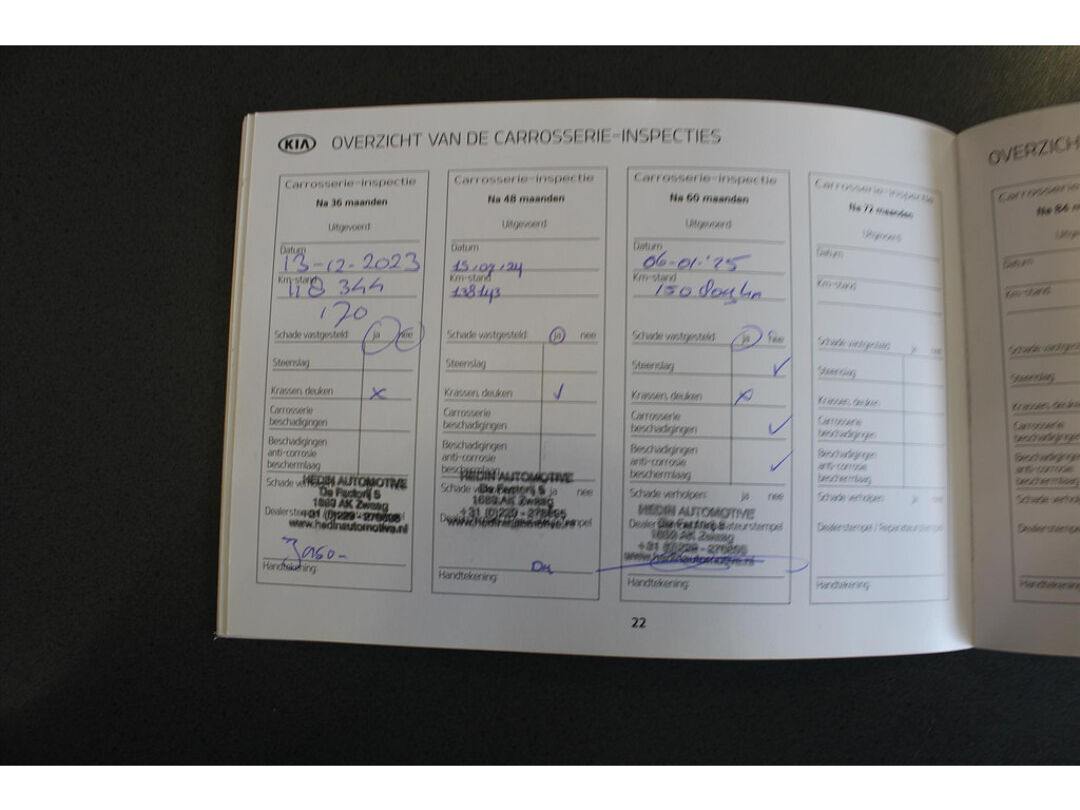 KIA OVERZICHT VAN DE CARROSSERIE-INSPECTIES
Carrosserie-inspectie
Na 36 maanden
Uitgevoerd
Datum
13-12-2023
Km-stand
118 344
170
Schade vastgesteld: ja nee
Steenslag
Krassen, deuken x
Carrosserie
beschadigingen
Beschadigingen
anti-corrosie
beschermlaag
HEDIN AUTOMOTIVE
De Factorij 5
1689 AK Zwaag
+31 (0)229 - 276895
www.hedinautomotive.nl
Handtekening:
Carrosserie-inspectie
Na 48 maanden
Uitgevoerd
Datum
15-07-24
Km-stand
138143
Schade vastgesteld: ja nee
Steenslag
Krassen, deuken ✓
Carrosserie
beschadigingen
Beschadigingen
anti-corrosie
beschermlaag
HEDIN AUTOMOTIVE
De Factorij 5
ja nee
1689 AK Zwaag
+31 (0)229 - 276895
www.hedinautomotive.nl
Handtekening:
Carrosserie-inspectie
Na 60 maanden
Uitgevoerd
Datum
06-01-'25
Km-stand
Schade vastgesteld: ja nee
Steenslag ✓
Krassen, deuken
Carrosserie
beschadigingen ✓
Beschadigingen
anti-corrosie ✓
beschermlaag
Schade verholpen: ja nee
HEDIN AUTOMOTIVE
De Factorij 5
1689 AK Zwaag
+31 (0)229 - 276895
www.hedinautomotive.nl
Handtekening:
Carrosserie-inspectie
Na 72 maanden
Uitgevoerd
Datum
Km-stand
Schade vastgesteld: ja nee
Steenslag
Krassen, deuken
Carrosserie
beschadigingen
Beschadigingen
anti-corrosie
beschermlaag
Schade verholpen: ja nee
Dealerstempel / Reparateurstempel
Handtekening:
22
OVERZICH
Carrosserie
Na 84
Datum
Km-stand
Steenslag
Krassen, deuken
Carrosserie
beschadigingen
Beschadigingen
anti-corrosie
beschermlaag
Schade verholpen
Dealerstempel
Handtekening